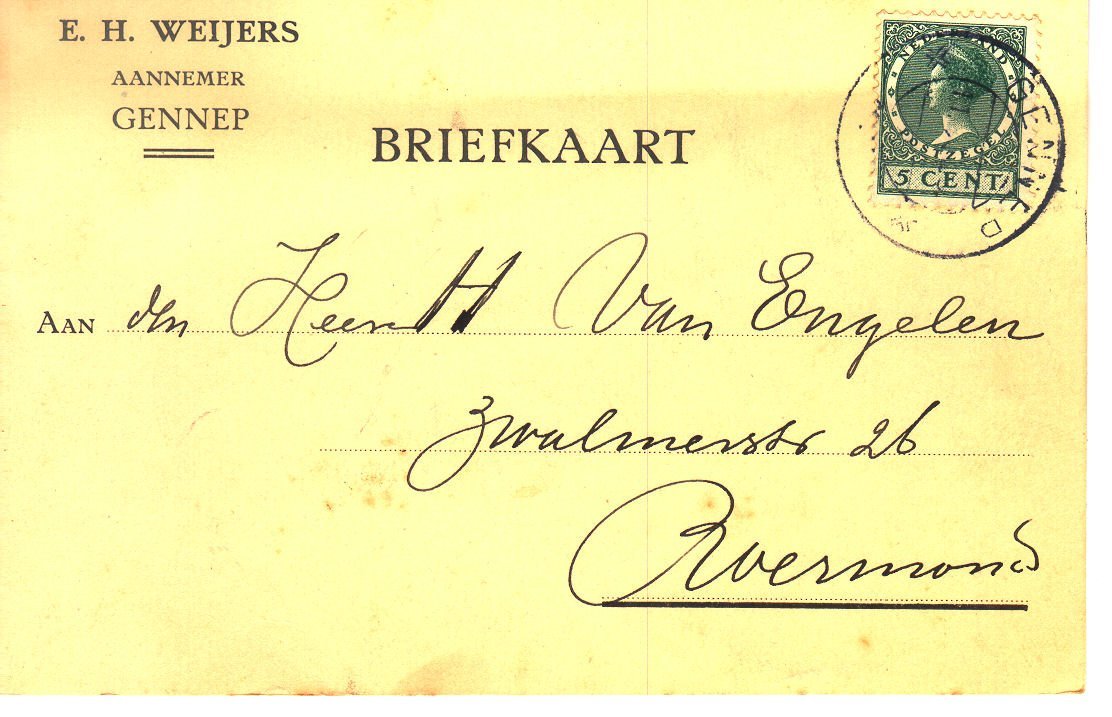 E. H. WEIJERS
AANNEMER
GENNEP
BRIEFKAART
NEDERLAND
POSTZEGEL
5 CENT
GENNEP
AAN den Heer H Van Engelen
Zwalmerstr 26
Roermond